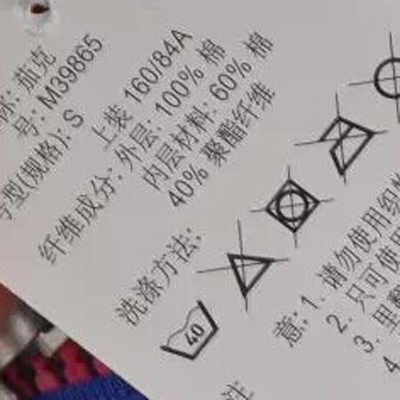 称: 茄克
号: M39865
号型(规格): S
上装 160/84A
纤维成分: 外层: 100% 棉
内层材料: 60% 棉
40% 聚酯纤维
洗涤方法:
40
注
意: 1. 请勿使用
2. 只可使用
3. 里
4